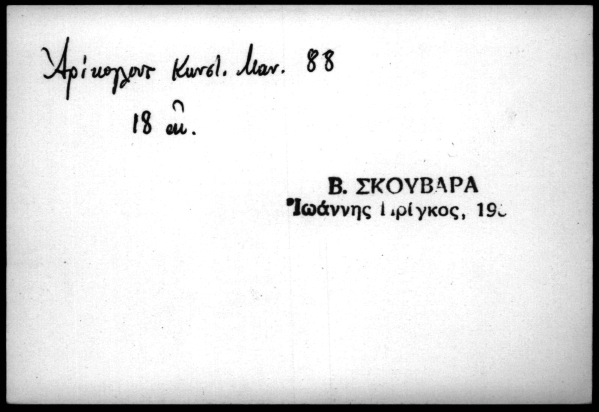 Ἀρίκογλους Κωνστ. Μαν. 88
18 αἰ.
Β. ΣΚΟΥΒΑΡΑ
Ἰωάννης Πρίγκος, 19